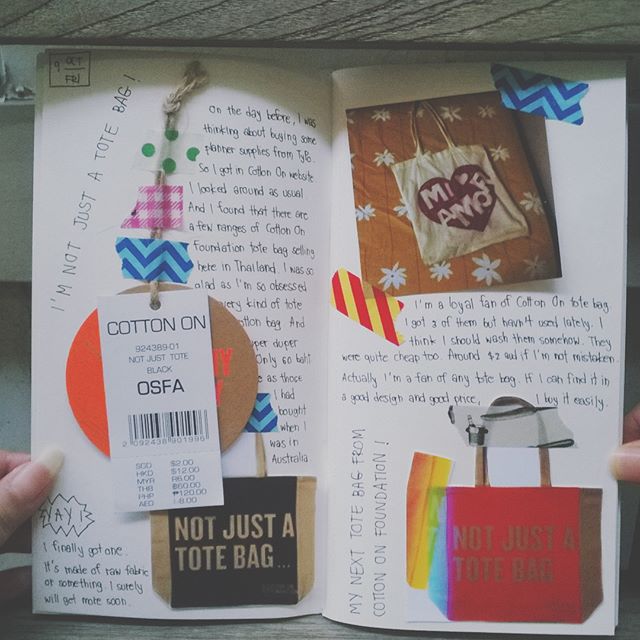 I'M NOT JUST A TOTE BAG!
On the day before, I was
thinking about buying some
planner supplies from Typo.
So I got in Cotton On website
I looked around as usual
And I found that there are
a few ranges of Cotton On
Foundation tote bag selling
here in Thailand. I was so
glad as I'm so obsessed
every kind of tote
cotton bag. And
super duper
Only 60 baht
as those
I had
bought
when I
was in
Australia
COTTON ON
924389-01
NOT JUST TOTE
BLACK
OSFA
2 092438 901996
SGD $2.00
HKD $12.00
MYR R6.00
THB ฿60.00
PHP ₱120.00
AED 8.00
YAY!
I finally got one.
It's made of raw fabric
or something. I surely
will get more soon.
NOT JUST A
TOTE BAG...
MI
AMO
I'm a loyal fan of Cotton On tote bag.
I got 3 of them but haven't used lately. I
think I should wash them somehow. They
were quite cheap too. Around $2 aud if I'm not mistaken.
Actually I'm a fan of any tote bag. If I can find it in
a good design and good price, I buy it easily.
MY NEXT TOTE BAG FROM
COTTON ON FOUNDATION!
NOT JUST A
TOTE BAG